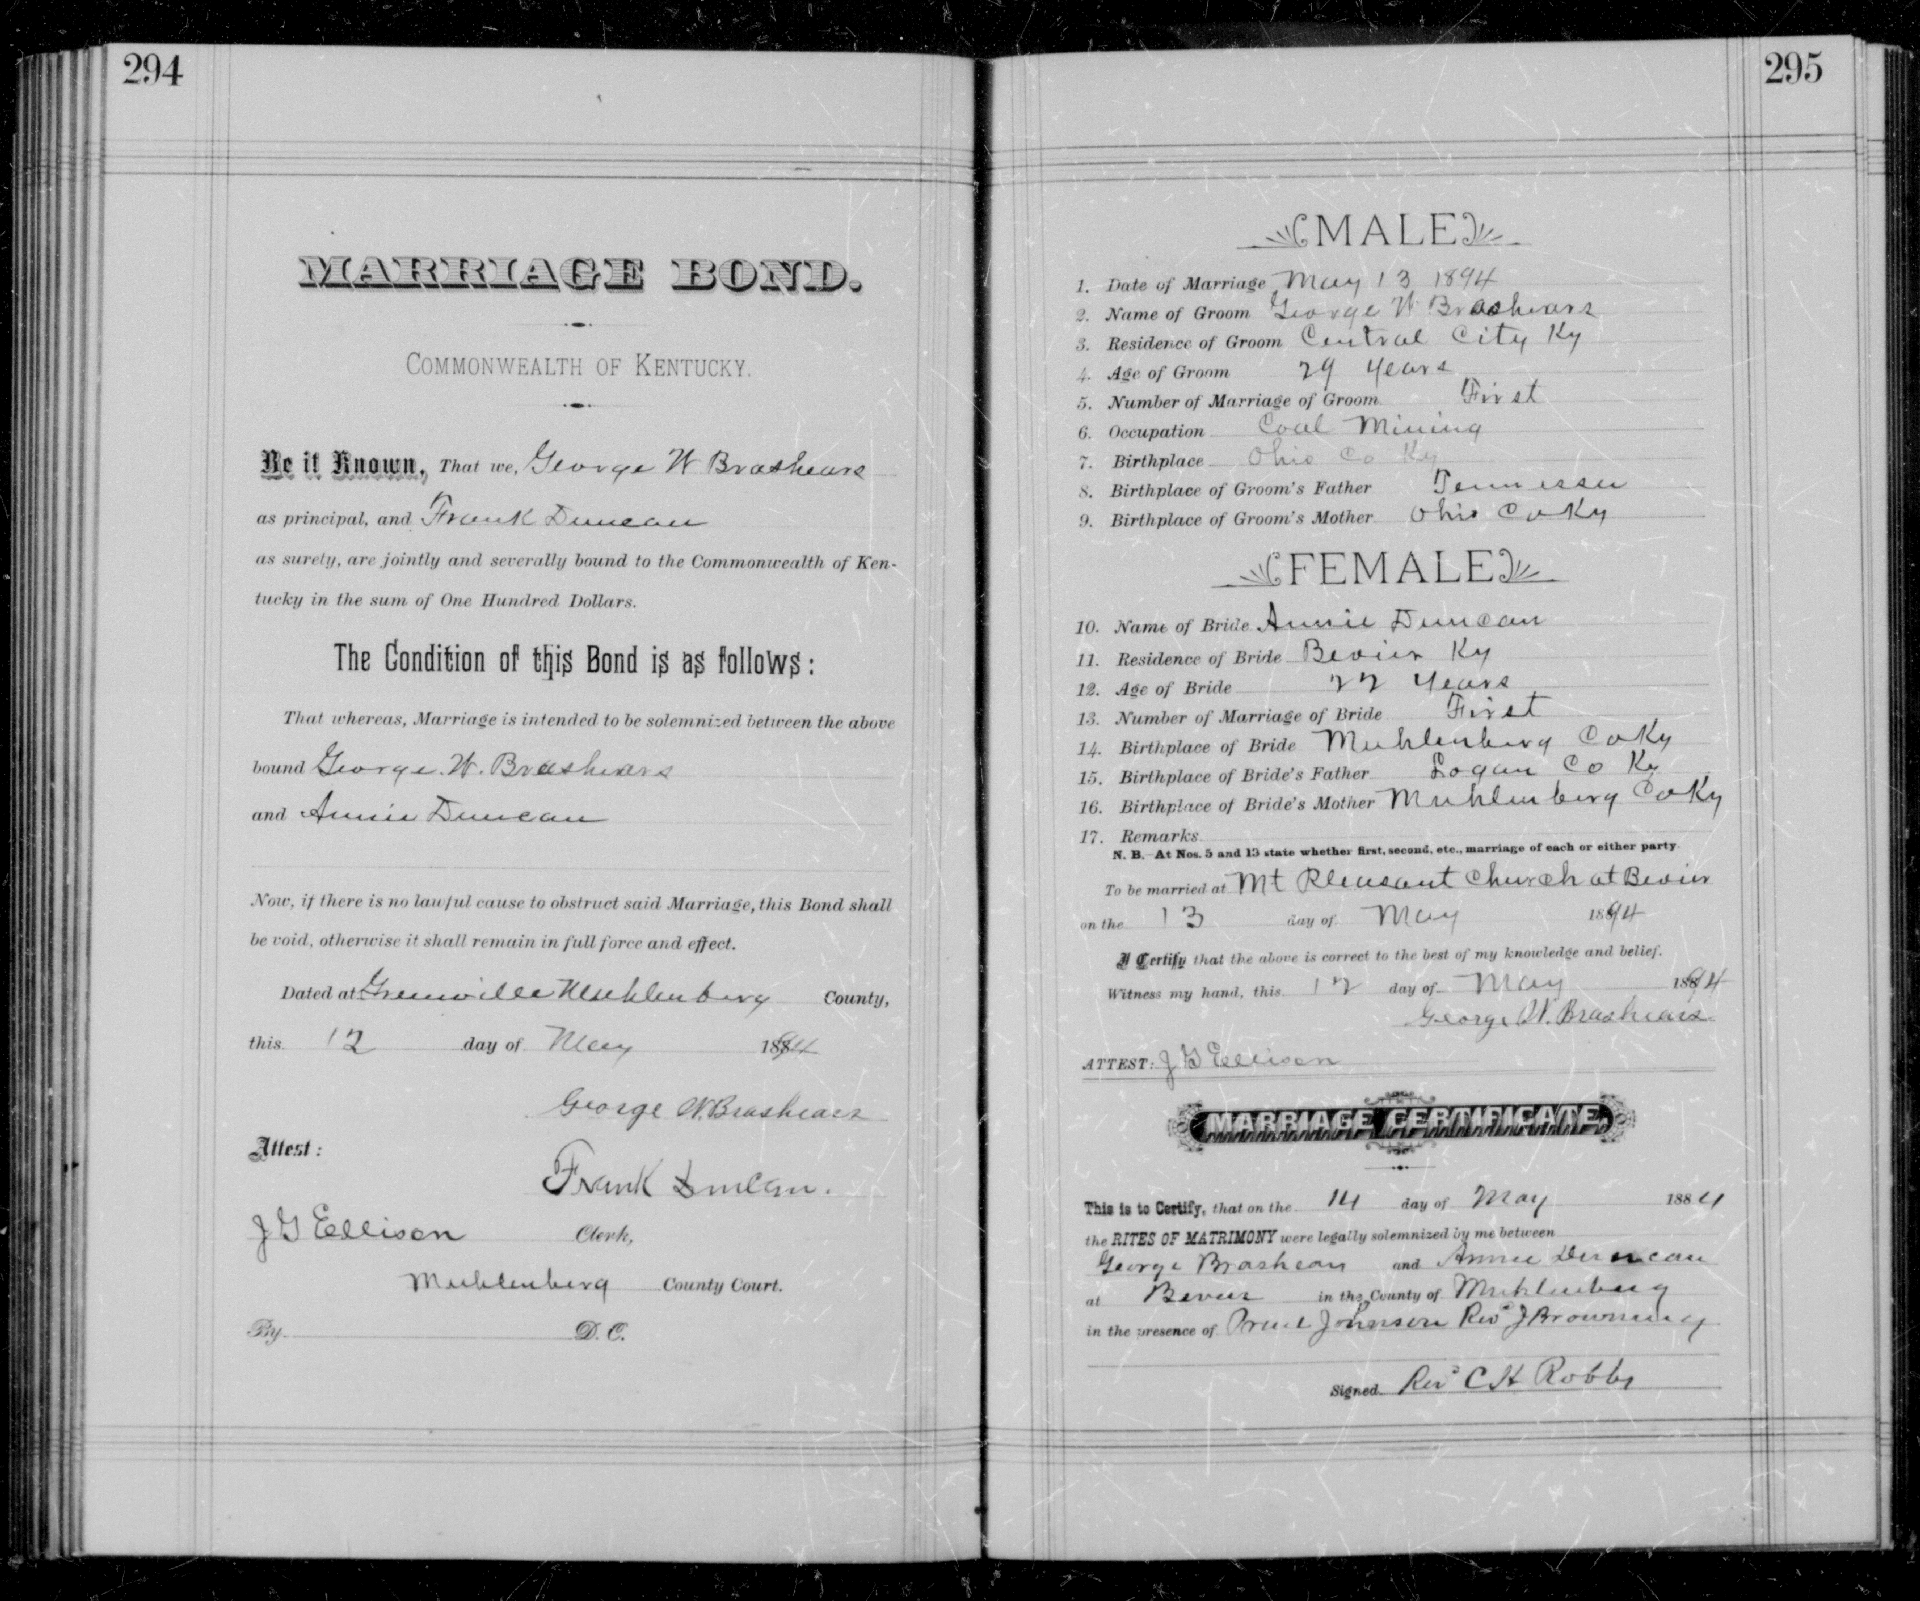 294
MARRIAGE BOND.
COMMONWEALTH OF KENTUCKY.
Be it Known, That we, George W Brashears
as principal, and Frank Duncan
as surety, are jointly and severally bound to the Commonwealth of Ken-
tucky in the sum of One Hundred Dollars.
The Condition of this Bond is as follows:
That whereas, Marriage is intended to be solemnized between the above
bound George. W. Brashears
and Annie Duncan
Now, if there is no lawful cause to obstruct said Marriage, this Bond shall
be void, otherwise it shall remain in full force and effect.
Dated at Greenville Muhlenberg County,
this 12 day of May 1894
George W. Brashears
Attest:
Frank Duncan.
J G Ellison Clerk,
Muhlenberg County Court.
By D. C.
295
MALE
1. Date of Marriage May 13 1894
2. Name of Groom George W Brashears
3. Residence of Groom Central City Ky
4. Age of Groom 29 years
5. Number of Marriage of Groom First
6. Occupation Coal Mining
7. Birthplace Ohio Co Ky
8. Birthplace of Groom's Father Tennessee
9. Birthplace of Groom's Mother Ohio Co Ky
FEMALE
10. Name of Bride Annie Duncan
11. Residence of Bride Bevier Ky
12. Age of Bride 22 years
13. Number of Marriage of Bride First
14. Birthplace of Bride Muhlenberg Co Ky
15. Birthplace of Bride's Father Logan Co Ky
16. Birthplace of Bride's Mother Muhlenberg Co Ky
17. Remarks
N. B. At Nos. 5 and 13 state whether first, second, etc., marriage of each or either party.
To be married at Mt Pleasant Church at Bevier
on the 13 day of May 1894
I Certify that the above is correct to the best of my knowledge and belief.
Witness my hand, this 12 day of May 1894
George W. Brashears
ATTEST: J G Ellison
MARRIAGE CERTIFICATE.
This is to Certify, that on the 14 day of May 1884
the RITES OF MATRIMONY were legally solemnized by me between
George Brashears and Annie Duncan
at Bevier in the County of Muhlenberg
in the presence of Johnson Rev J Browning
Signed Rev C H Robby